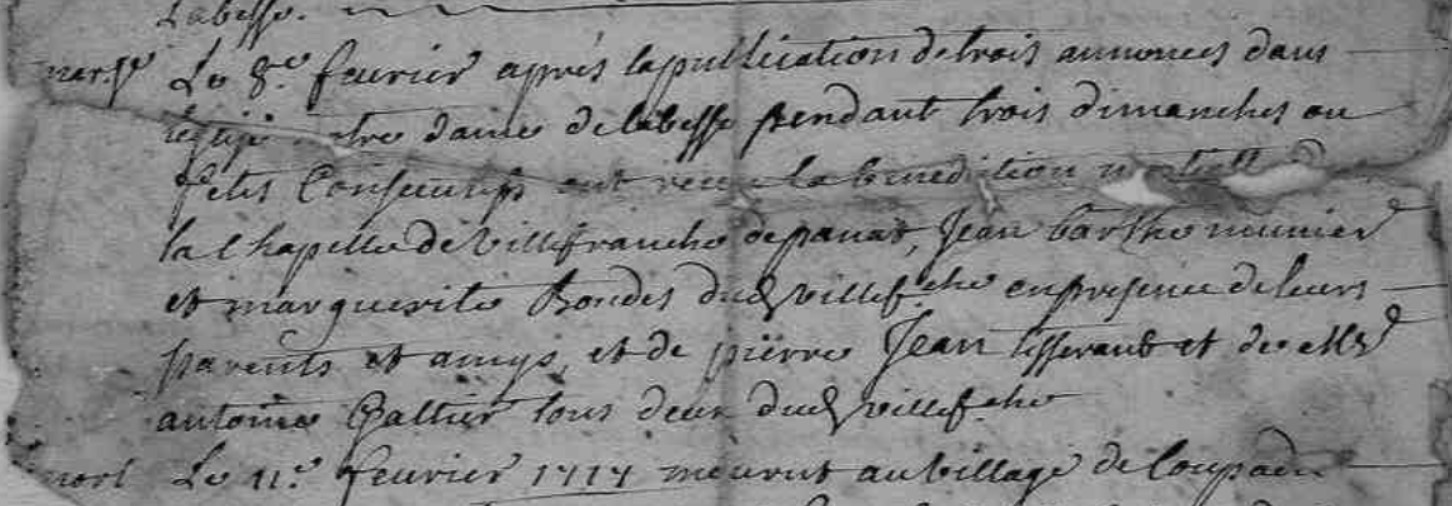 Labesse.
mar.ge Le 8.e feurier aprés la publication de trois annonces dans
leglise notre dame de labesse pendant trois dimanches ou
fetes Consecutifs ont receu la benediction nuptialle
la Chapelle de villefranche de panat, Jean barthe munier
et marguerite Boudes dud villef.che en presence de leurs
parents et amys, et de pierre Jean tisserant et de Mr
antoine Galtier tous deux dud villefche
mort Le 11.e feurier 1717 mourut au village de Coupadel